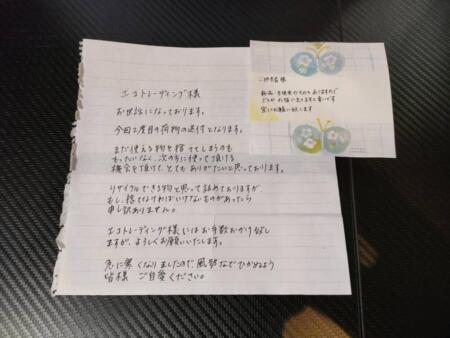 エコトレーディング様
お世話になっております。
今回2度目の荷物の送付となります。
まだ使える物を捨ててしまうのも
もったいなく、次の方に使って頂ける
機会を頂けて、とてもありがたいと思っております。
リサイクルできる物と思って詰めておりますが、
もし、捨てなければいけないものがあったら
申し訳ありません。
エコトレーディング様にはお手数おかけ致し
ますが、よろしくお願いいたします。
急に寒くなりましたので、風邪などひかぬよう
皆様 ご自愛ください。
ご担当者様
新品・未使用のものもありますので
どなたかのお役に立てますと幸いです
宜しくお願い致します